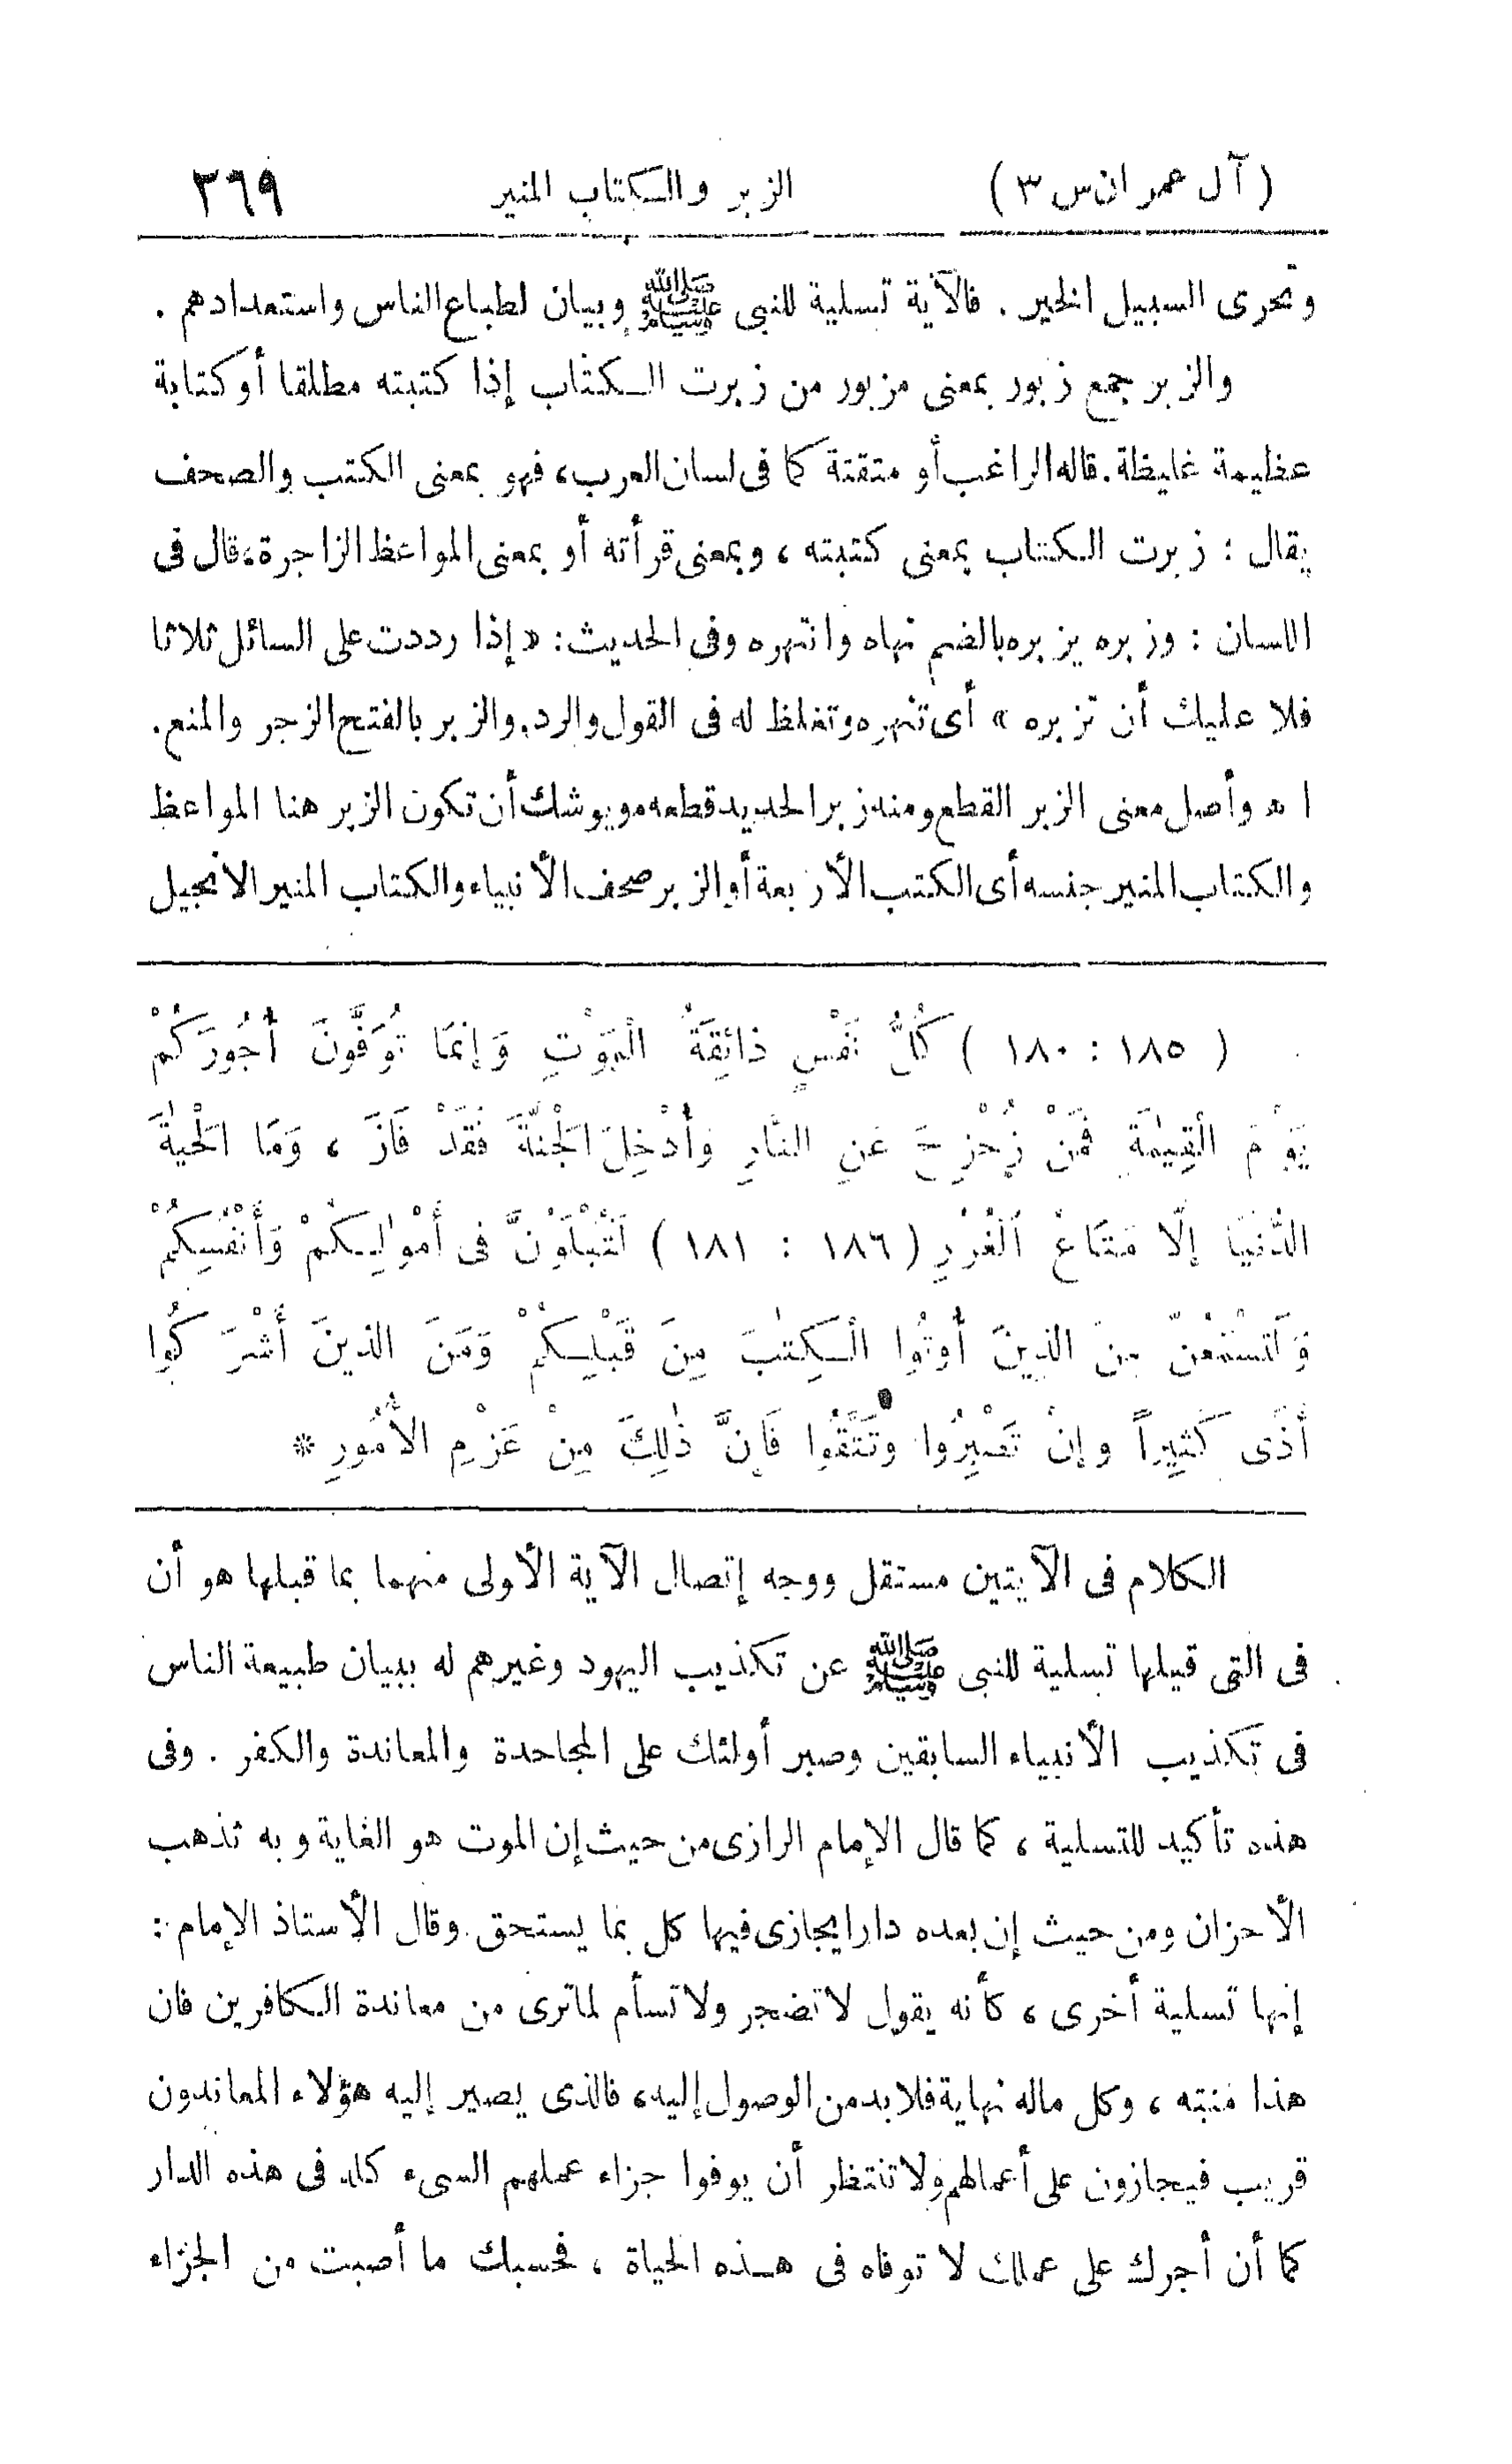 (آل عمران س ٣) الزبر والكتاب المنير ٢٦٩
وتحرى السبيل الخير . فالآية تسلية للنبى ﷺ وبيان لطباع الناس واستعدادهم .
والزبر جمع زبور بمعنى مزبور من زبرت الكتاب إذا كتبته مطلقا أو كتابة
عظيمة غليظة . قاله الراغب أو متقنة كما فى لسان العرب ، فهو بمعنى الكتب والصحف
يقال : زبرت الكتاب بمعنى كتبته ، وبمعنى قرأته أو بمعنى المواعظ الزاجرة ، قال فى
اللسان : وزبره يزبره بالضم نهاه وانتهره وفى الحديث : « إذا رددت على السائل ثلاثا
فلا عليك أن تزبره » أى تنهره وتغلظ له فى القول والرد . والزبر بالفتح الزجر والمنع .
ا ه وأصل معنى الزبر القطع ومنه زبر الحديد قطعه ويوشك أن تكون الزبر هنا المواعظ
والكتاب المنير جنسه أى الكتب الأربعة أو الزبر صحف الأنبياء والكتاب المنير الانجيل
( ١٨٥ : ١٨٠ ) كُلُّ نَفْسٍ ذائِقَةُ الْمَوْتِ وَإنمَا تُوَفَّوْنَ أُجُورَكُمْ
يَوْمَ الْقِيٰمَةِ فَمَنْ زُحْزِحَ عَنِ النَّارِ وَأُدْخِلَ الْجَنَّةَ فَقَدْ فَازَ ، وَمَا الْحَيٰةُ
الدُّنْيَا إلَّا مَتَاعُ الْغُرُرِ ( ١٨٦ : ١٨١ ) لَتُبْلَوُنَّ فى أَمْوٰلِكُمْ وَأَنْفُسِكُمْ
وَلَتَسْمَعُنّ مِنَ الذِينَ أُوتُوا الْكِتٰبَ مِنَ قَبْلِكُمْ وَمَنَ الذينَ أَشْرَكُوا
أَذًى كَثِيراً وإنْ تَصْبِرُوا وتَتَّقُوا فَإنَّ ذٰلِكَ مِنْ عَزْمِ الأُمُورِ *
الكلام فى الآيتين مستقل ووجه إتصال الآية الأولى منهما بما قبلها هو أن
فى التى قبلها تسلية للنبى ﷺ عن تكذيب اليهود وغيرهم له ببيان طبيعة الناس
فى تكذيب الأنبياء السابقين وصبر أولئك على المجاحدة والمعاندة والكفر . وفى
هذه تأكيد للتسلية ، كما قال الإمام الرازى من حيث إن الموت هو الغاية وبه تذهب
الأحزان ومن حيث إن بعده دارا يجازى فيها كل بما يستحق . وقال الأستاذ الإمام :
إنها تسلية أخرى ، كأنه يقول لا تضجر ولا تسأم لما ترى من معاندة الكافرين فان
هذا منته ، وكل ماله نهاية فلا بد من الوصول إليه ، فالذى يصير إليه هؤلاء المعاندون
قريب فيجازون على أعمالهم ولا تنتظر أن يوفوا جزاء عملهم السىء كله فى هذه الدار
كما أن أجرك على عملك لا توفاه فى هذه الحياة ، فحسبك ما أصبت من الجزاء